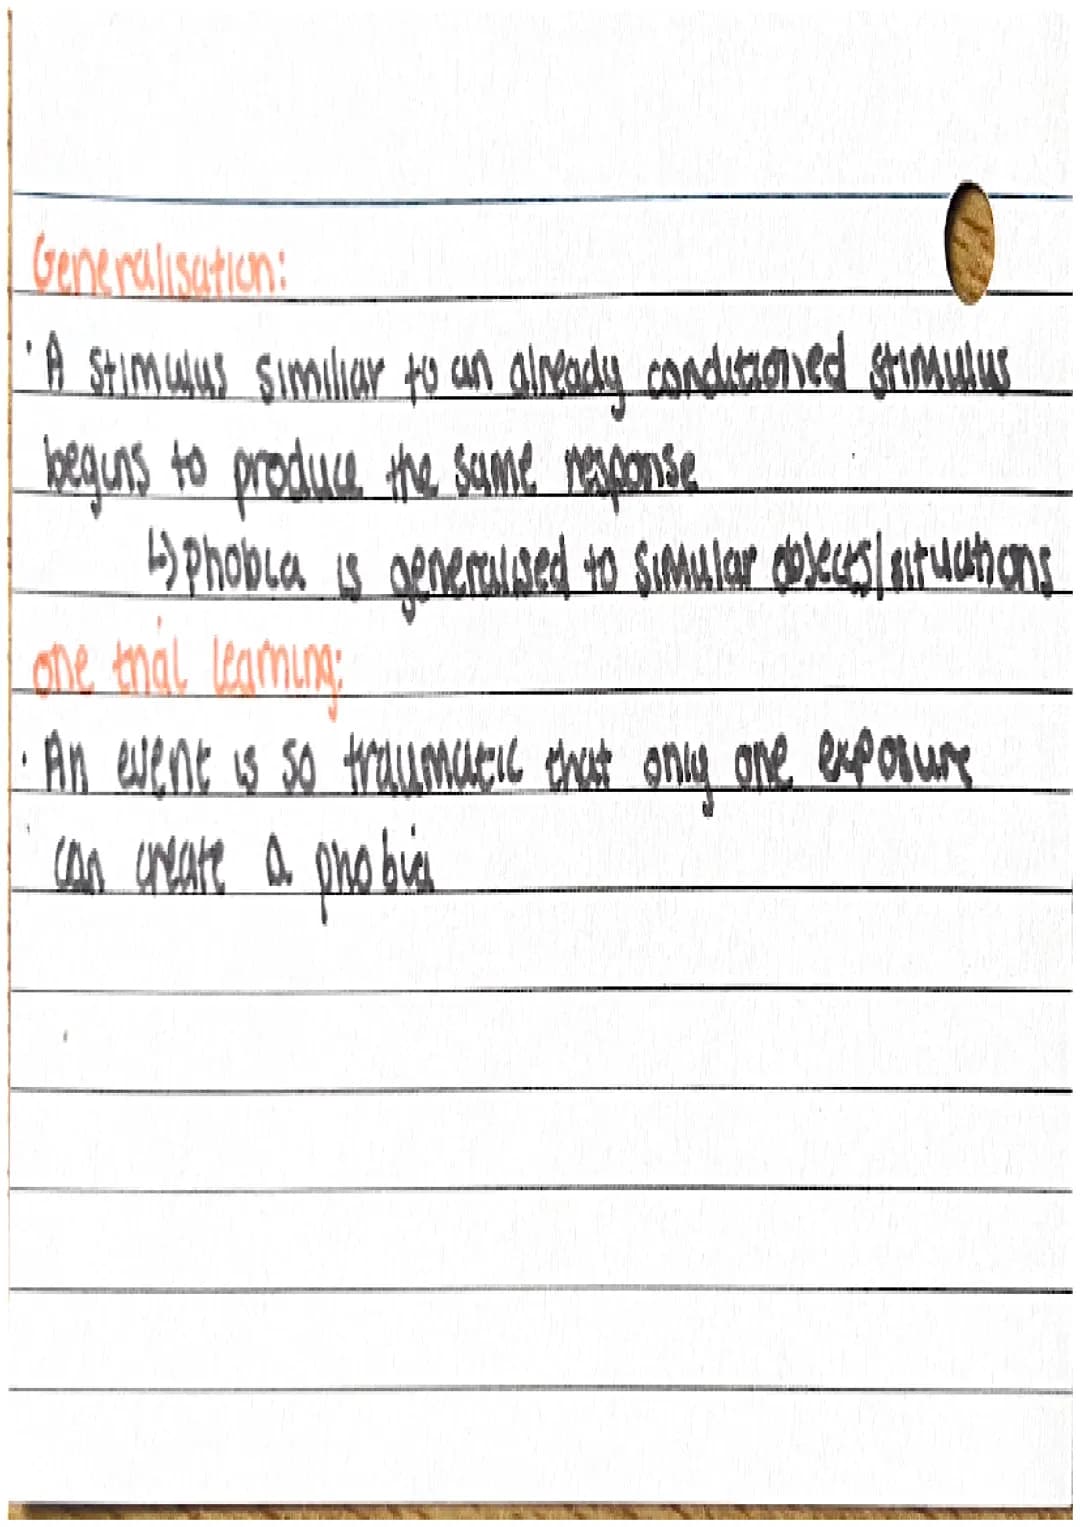 Generalisation:
· A stimulus similiar to an already conditioned stimulus
begins to produce the same response
↳ phobia is generalised to similar objects/situations
one trial learning:
· An event is so traumatic that only one exposure
can create a phobia